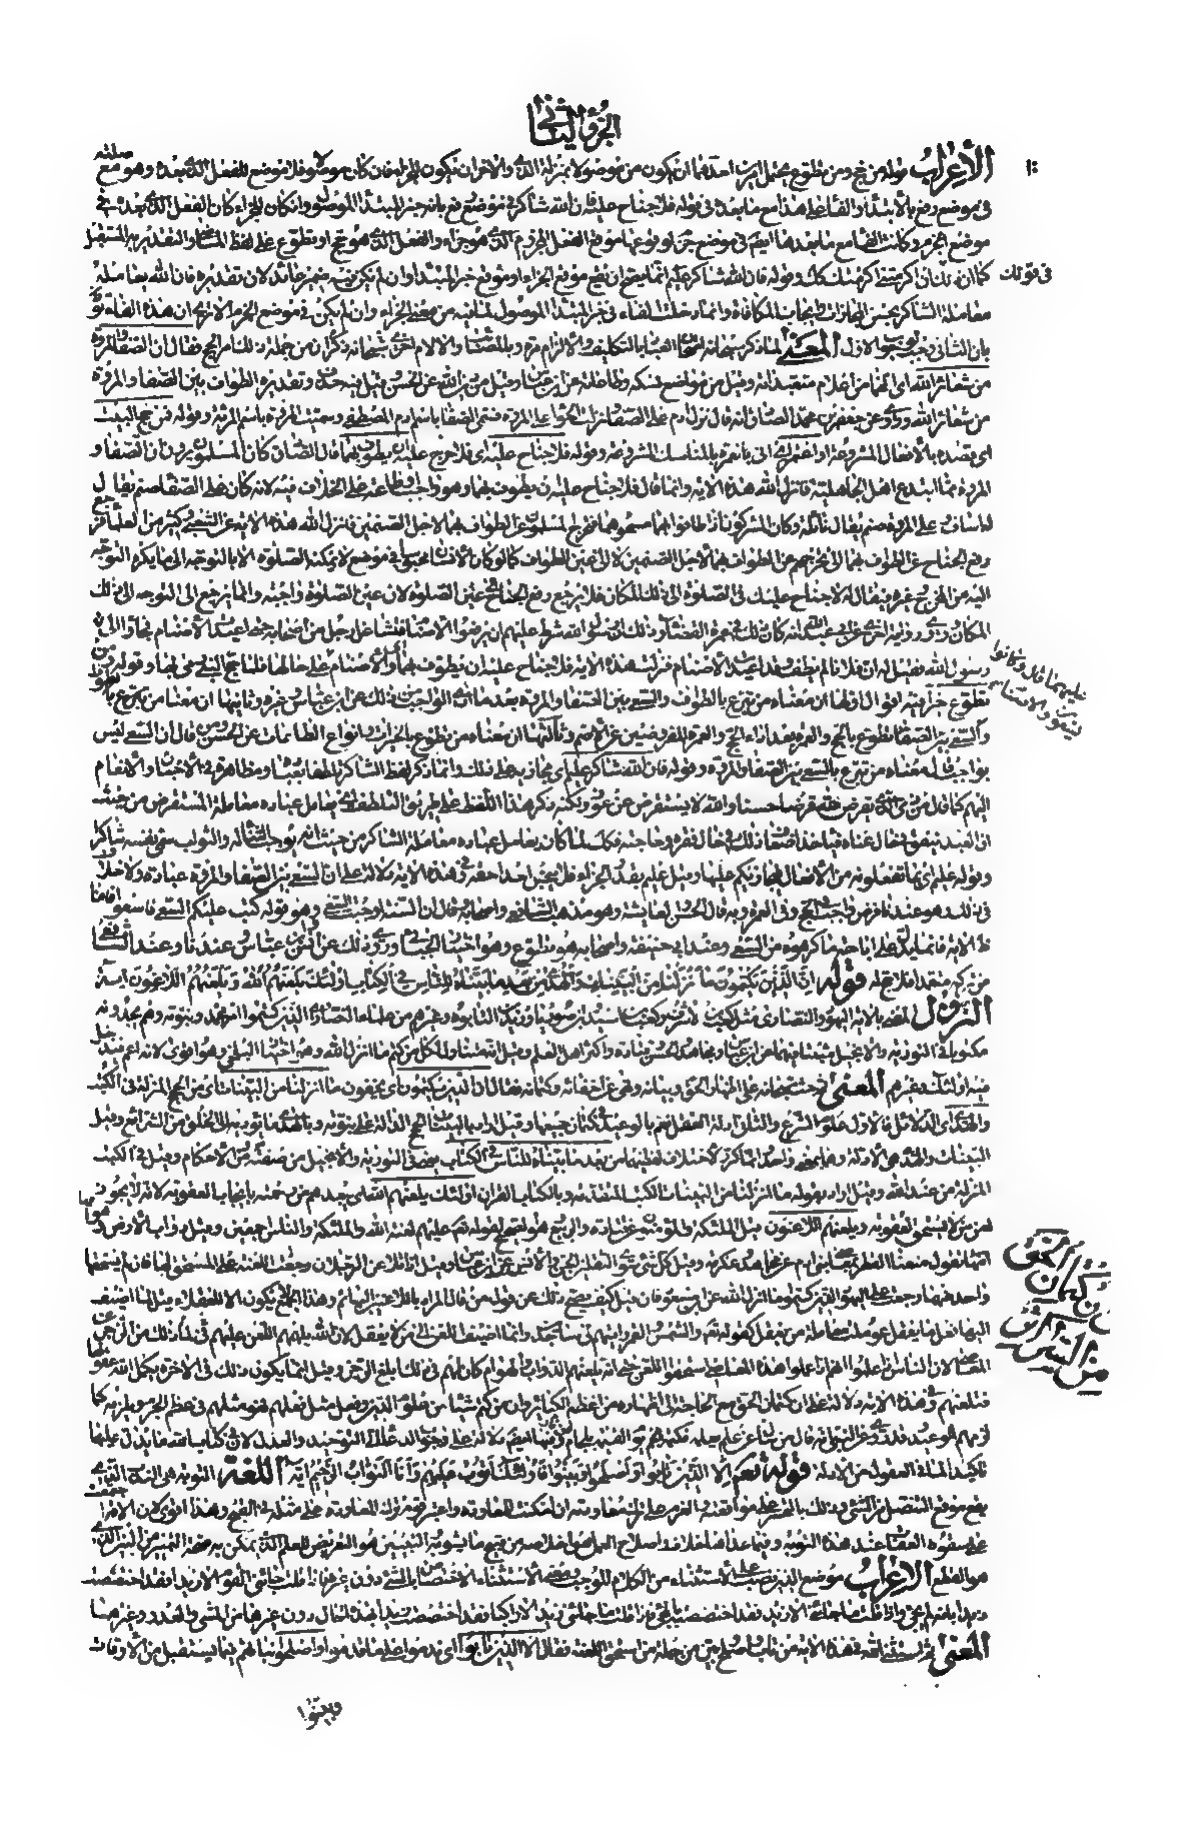 الجزو الثاني
الاعراب قوله من حج ومن تطوع يحتمل امرين احدهما ان يكون من موصولا بمنزلة الذي والاخر ان يكون للجزاء فان كان موصولا فلا موضع للفعل الذي بعده وهو مع صلته
في موضع رفع بالابتداء والفاء على هذا مع ما بعده في قوله فلا جناح عليه فان الله شاكر في موضع رفع بانه خبر المبتدا الموصول وان كان للجزاء كان الفعل الذي بعده في
موضع الجزم وكانت الفاء مع ما بعدها ايضا في موضع جزم لوقوعها موقع الفعل المجزوم الذي هو جزاء والفعل الذي هو حج او تطوع على لفظ الماضي والتقدير به المستقبل
كما ان ذلك ان اكرمتني اكرمتك كذلك وقوله فان الله شاكر عليم انما يصح ان يقع موقع الجزاء او موقع خبر المبتدا وان لم يكن فيه ضمير عائد لان تقديره فان الله يعامله
في قولك
معاملة الشاكر بحسن المجازاة وايجاب المكافاة وانما دخلت الفاء في خبر المبتدا الموصول لما فيه من معنى الجزاء وان لم يكن في موضع الجزم الا ترى ان هذه الفاء تؤذن
بان الثاني وجب لوجوب الاول المعنى لما ذكر سبحانه امتحان العباد بالتكليف والالزام مرة وبالمصائب والالام اخرى ذكر سبحانه ان من جملة ذلك امر الحج فقال ان الصفا والمروة
من شعائر الله اي انهما من اعلام متعبداته وقيل من مواضع نسكه وطاعاته عن ابن عباس وقيل من دين الله عن الحسن وقيل فيه حذف وتقديره الطواف بين الصفا والمروة
من شعائر الله وروي عن جعفر بن محمد الصادق انه قال نزل ادم على الصفا ونزلت حوا على المروة فسمي الصفا باسم ادم المصطفى وسميت المروة باسم المراة وقوله فمن حج البيت
اي قصده بالافعال المشروعة او اعتمر اي اتى بالعمرة بالمناسك المشروعة وقوله فلا جناح عليه اي فلا حرج عليه ان يطوف بهما قال الصادق كان المسلمون يرون ان الصفا و
المروة مما ابتدع اهل الجاهلية فانزل الله هذه الاية وانما قال فلا جناح عليه ان يطوف بهما وهو واجب او طاعة على الخلاف فيه لانه كان على الصفا صنم يقال
له اساف وعلى المروة صنم يقال له نائلة وكان المشركون اذا طافوا بهما مسحوهما فتحرج المسلمون عن الطواف بهما لاجل الصنمين فانزل الله هذه الاية عن الشعبي وكثير من العلماء فرجع
رفع الجناح عن الطواف بهما الى تحرجهم عن الطواف بهما لاجل الصنمين لا الى عين الطواف كما لو كان الانسان محبوسا في موضع لا يمكنه الصلوة الا بالتوجه الى ما يكره التوجه
اليه من المخرج وغيره فيقال له لا جناح عليك في الصلوة الى ذلك المكان فلا يرجع رفع الجناح الى عين الصلوة لان عين الصلوة واجبة وانما يرجع الى التوجه الى ذلك
المكان ورويت رواية اخرى عن ابي عبد الله انه كان ذلك في عمرة القضاء وذلك ان رسول الله شرط عليهم ان يرفعوا الاصنام فتشاغل رجل من اصحابه حتى اعيدت الاصنام فجاؤا الى
رسول الله فقيل له ان فلانا لم يطف وقد اعيدت الاصنام فنزلت هذه الاية فلا جناح عليه ان يطوف بهما والاصنام على حالها فلما حج النبي رمى بها وقوله ومن
عليهما قال وكانوا
تطوع خيرا فيه اقوال اولها ان معناه من تبرع بالطواف والسعي بين الصفا والمروة بعد ما ادى الواجب من ذلك عن ابن عباس وغيره وثانيها ان معناه من تبرع
والسعي بين الصفا تطوع بالحج والعمرة بعد اداء الحج والعمرة المفروضين عن الاصم وثالثها ان معناه من تطوع بالخيرات وانواع الطاعات عن الحسن ومن قال ان السعي ليس
بواجب قال معناه من تبرع بالسعي بين الصفا والمروة وقوله فان الله شاكر عليم اي مجازيه على ذلك وانما ذكر لفظ الشاكر تلطفا بعباده ومظاهرة في الاحسان والانعام
اليهم كما قال من ذا الذي يقرض الله قرضا حسنا والله لا يستقرض عن عوز ولكنه ذكر هذا اللفظ على طريق التلطف اي يعامل عباده معاملة المستقرض من حيث
ان العبد ينفق في حال غناه فياخذ اضعاف ذلك في حال فقره وحاجته فكذلك لما كان يعامل عباده معاملة الشاكر من حيث انه يوجب الثناء له والثواب سمى نفسه شاكرا
وقوله عليم اي بما تفعلونه من الافعال فيجازيكم عليها وقيل عليم بقدر الجزاء فلا يبخس احدا حقه وفي هذه الاية دلالة على ان السعي بين الصفا والمروة عبادة ولا خلاف
في ذلك وهو عندنا فرض واجب في الحج وفي العمرة وبه قال الحسن وعايشة وهو مذهب الشافعي واصحابه وقال ان السنة اوجبت السعي وهو قوله كتب عليكم السعي فاسعوا فاما
ظاهر الاية فانما يدل على اباحة ما كرهوه من السعي وعند ابي حنيفة واصحابه هو تطوع وهو اختيار الجبائي وروي ذلك عن انس وابن عباس وعندنا وعند الشافعي
من تركه متعمدا فلا حج له قوله ان الذين يكتمون ما انزلنا من البينات والهدى من بعد ما بيناه للناس في الكتاب اولئك يلعنهم الله ويلعنهم اللاعنون آية
النزول المعني بالاية اليهود والنصارى مثل كعب بن الاشرف وكعب بن اسد وابن صوريا وزيد بن التابوه وغيرهم من علماء النصارى الذين كتموا امر محمد ونبوته وهم يجدونه
مكتوبا في التورية والانجيل مثبتا فيهما عن ابن عباس ومجاهد والحسن وقتادة واكثر اهل العلم وقيل انه متناول لكل من كتم ما انزل الله وهو اختيار البلخي وهو اقوى لانه اعم فيدخل
فيه اولئك وغيرهم المعنى ثم حث سبحانه على اظهار الحق وبيانه ونهى عن اخفائه وكتمانه فقال ان الذين يكتمون اي يخفون ما انزلنا من البينات اي من الحجج المنزلة في الكتب
والهدى اي الدلائل فالاول علوم الشرع والثاني ادلة العقل فعم بالوعيد في كتمان جميعها وقيل اراد بالبينات الحجج الدالة على نبوته وبالهدى ما يؤديه الى الخلق من الشرائع وقيل
البينات والهدى هي الادلة وهما بمعنى واحد وانما كرر لاختلاف لفظيهما من بعد ما بيناه للناس في الكتاب يعني في التورية والانجيل من صفته ومن الاحكام وقيل في الكتب
المنزلة من عند الله وقيل اراد بقوله ما انزلنا من البينات الكتب المتقدمة وبالكتاب القران اولئك يلعنهم الله اي يبعدهم من رحمته بايجاب العقوبة لانه لا يجوز
لعن من لا يستحق العقوبة ويلعنهم اللاعنون قيل الملئكة والمؤمنون عن قتادة والربيع وهو الصحيح لقوله عليهم لعنة الله والملئكة والناس اجمعين وقيل دواب الارض وهوامها
كتمان الحق
من الشرك
تقول منعنا القطر بمعاصي بني ادم عن مجاهد وعكرمة وقيل كل شيء سوى الثقلين الجن والانس عن ابن عباس وقيل اذا تلاعن الرجلان رجعت اللعنة على المستحق لها فان لم يستحقها
واحد منهما رجعت على اليهود الذين كتموا ما انزل الله عن ابن مسعود فان قيل كيف يصح ذلك على قول من قال المراد باللاعنين البهائم وهذا الجمع لا يكون الا للعقلاء قيل لما اضيف
اليها فعل ما يعقل عوملت معاملة من يعقل كقوله والشمس والقمر رايتهم لي ساجدين وانما اضيف اللعن الى من لا يعقل لان الله يلهمهم اللعن عليهم لما في ذلك من الزجر عن
المعاصي لان الناس اذا علموا انهم اذا عملوا هذه المعاصي استحقوا اللعن حتى انه يلعنهم الدواب والهوام كان لهم في ذلك ابلغ الزجر وقيل انما يكون ذلك في الاخرة يكمل الله عقولها
فتلعنهم وفي هذه الاية دلالة على ان كتمان الحق مع الحاجة الى اظهاره من اعظم الكبائر وان من كتم شيئا من علوم الدين وفعل مثل فعلهم فهو مثلهم في عظم الجرم ويلزمه كما
لزمهم الوعيد وقد روي عن النبي انه قال من سئل عن علم يعلمه فكتمه الجم يوم القيمة بلجام من نار وفيها ايضا دلالة على وجوب الدعاء الى التوحيد والعدل لان في كتاب الله ما يدل عليهما
تاكيدا لما في العقول من الادلة قوله تعالى الا الذين تابوا واصلحوا وبينوا فاولئك اتوب عليهم وانا التواب الرحيم آية اللغة التوبة هي الندم الذي
يقع موقع التنصل من الشيء وذلك بالتحسر على مواقعته والعزم على ترك معاودته ان امكنت المعاودة واعتبر قوم ترك المعاودة على مثله في القبح وهذا اقوى لان الامة اجمعت
على سقوط العقاب عند هذه التوبة وفيما عداها خلاف واصلاح العمل هو اخلاصه من قبيح ما يشوبه والتبيين هو التعريض للعلم الذي يمكن به صحة التمييز من البين الذي
هو القطع الاعراب موضع الذين نصب على الاستثناء من الكلام الموجب ومعنى الاستثناء الاختصاص بالشيء دون غيره فاذا قلت جائني القوم الا زيدا فقد اختصصت
زيدا بانه لم يجئ واذا قلت ما جائني الا زيد فقد اختصصته بالمجيء واذا قلت ما جائني زيد الا راكبا فقد اختصصت زيدا بهذه الحال دون غيرها من المشي والعدو وغيرهما
المعنى ثم استثنى الله في هذه الاية من تاب واصلح وبين من جملة من استحق اللعنة فقال الا الذين تابوا اي ندموا على ما قدموا واصلحوا نياتهم فيما يستقبل من الاوقات
وبينوا